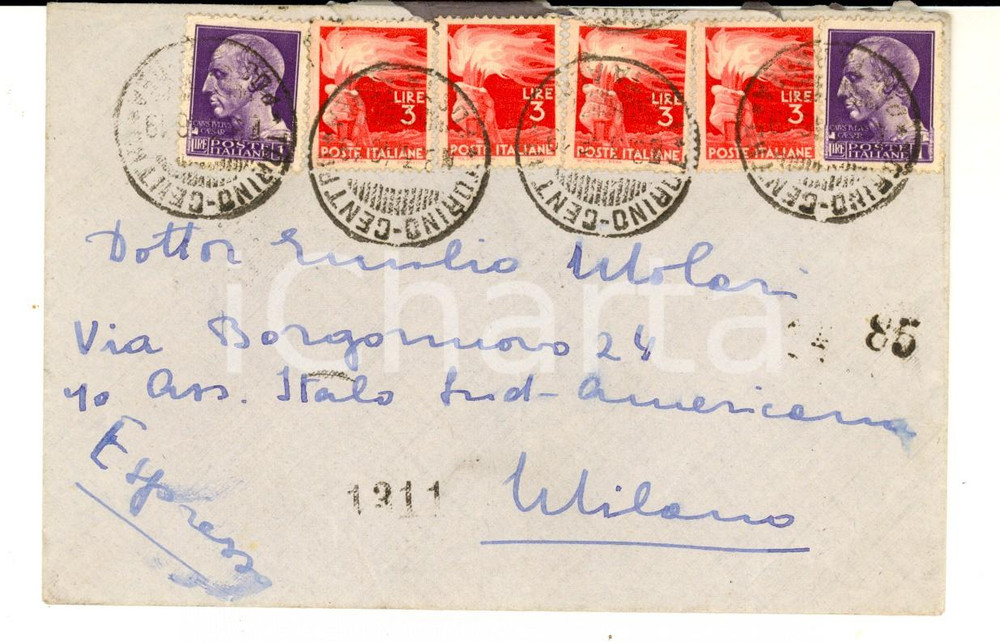 LIRE 3 POSTE ITALIANE
LIRE 3 POSTE ITALIANE
LIRE 3 POSTE ITALIANE
LIRE 3 POSTE ITALIANE
CAESAR
LIRE POSTE ITALIANE
CAESAR
LIRE POSTE ITALIANE
TORINO-CENTR
TORINO-CENTR
TORINO-CENT
TORINO-CENT
Dottor Emilio Molari
Via Borgonuovo 24
85
c/o Ass. Italo Sud-Americana
Espresso
1311
Milano
iCharta